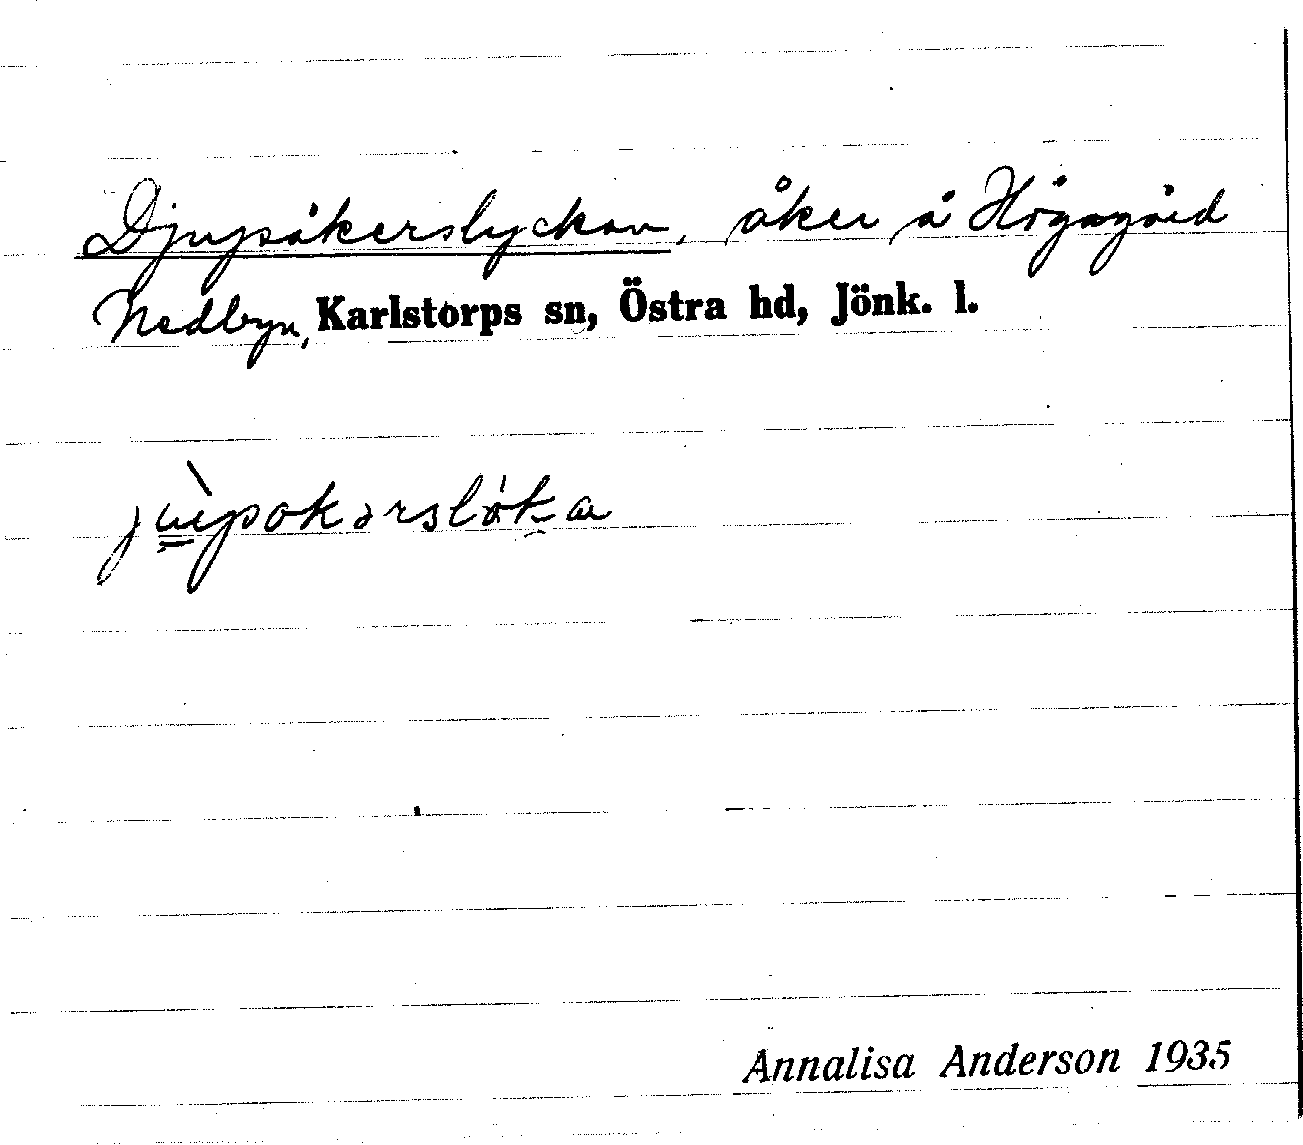 Djupsåkerslyckan, åker å Högagärd
Nedbyn, Karlstorps sn, Östra hd, Jönk. l.
Annalisa Anderson 1935